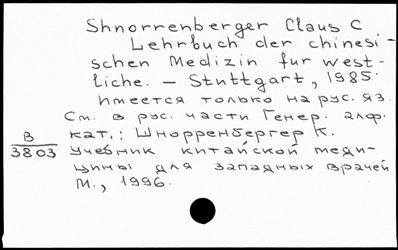 Shnorrenberger Claus C
Lehrbuch der chinesi-
schen Medizin fur west-
liche. — Stuttgart, 1985.
Имеется только на рус. яз.
См. в рус. части Генер. алф.
кат.: Шнорренбергер К.
В
3803
Учебник китайской меди-
цины для западных врачей
М., 1996.